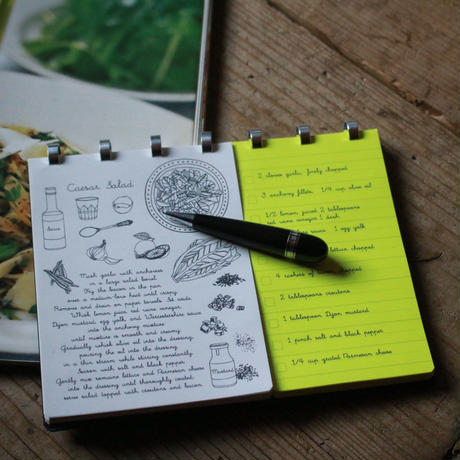 Caesar Salad
Sauce
Mash garlic with anchovies
in a large salad bowl.
Fry the bacon in the pan
over a medium-low heat until crispy.
Remove and drain on paper towels. Set aside.
Whisk lemon juice, red wine vinegar,
Dijon mustard, egg yolk and Worcestershire sauce
into the anchovy mixture
until mixture is smooth and creamy.
Gradually whisk olive oil into the dressing,
pouring the oil into the dressing
in a thin stream while stirring constantly.
Season with salt and black pepper.
Gently mix romaine lettuce and Parmesan cheese
into the dressing until thoroughly coated;
serve salad topped with croutons and bacon.
Mustard
2 cloves garlic, finely chopped
3 anchovy fillets 1/4 cup olive oil
1/2 lemon, juiced 2 tablespoons
red wine vinegar 1 dash
sauce 1 egg yolk
lettuce chopped
4 rashers of
2 tablespoons croutons
1 tablespoon Dijon mustard
1 pinch salt and black pepper
1/4 cup grated Parmesan cheese